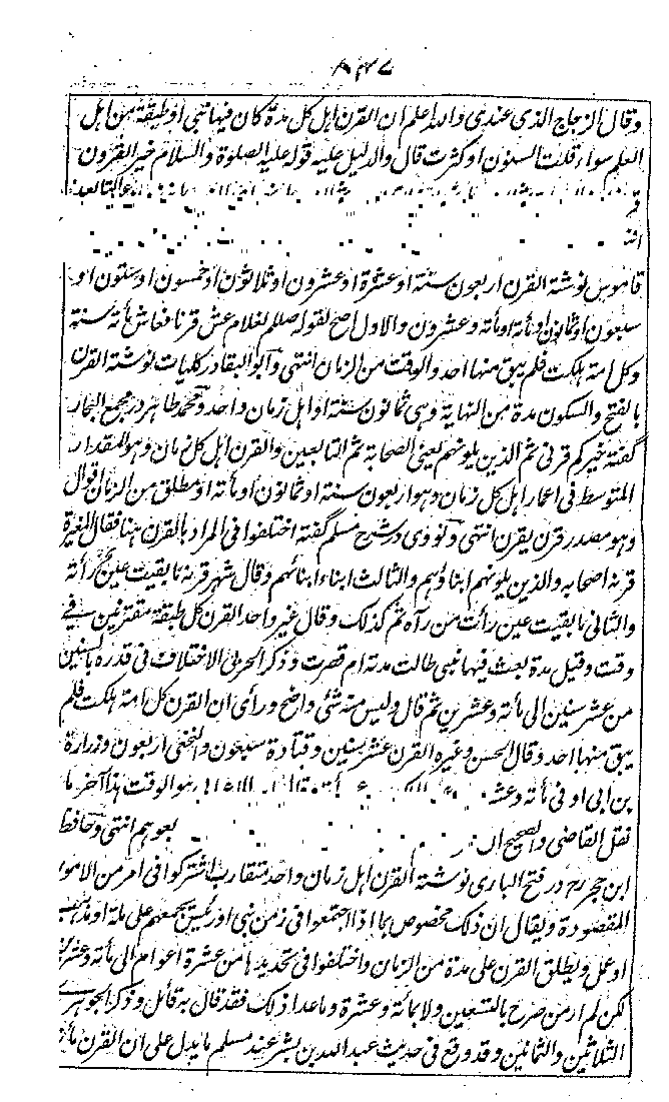 ۸۴۷
وقال الزجاج الذی عندی واللہ اعلم ان القرن اہل کل مدة کان فیہا نبی او طبقة من اہل
العلم سواء قلت السنون او کثرت قال والدلیل علیہ قولہ علیہ الصلوة والسلام خیر القرون
قر
قاموس نوشتہ القرن اربعون سنتہ او عشرة او عشرون او ثلاثون او خمسون او ستون او
سبعون او ثمانون او مأتہ او مأتہ وعشرون والاول اصح لقولہ صلعم لغلام عش قرنا فعاش مأتہ سنتہ
وکل امتہ ہلکت فلم یبق منہا احد والوقت من الزمان انتہی وابو البقا در کلیات نوشتہ القرن
بالفتح والسکون مدة من النہایة وہی ثمانون سنتہ او اہل زمان واحد ومحمد طاہر در مجمع البحار
گفتہ خیرکم قرنی ثم الذین یلونہم یعنی الصحابة ثم التابعین والقرن اہل کل زمان وہو المقدار
المتوسط فی اعمار اہل کل زمان وہو اربعون سنتہ او ثمانون او مأتہ او مطلق من الزمان اقوال
وہو مصدر قرن یقرن انتہی ونووی در شرح مسلم گفتہ اختلفوا فی المراد بالقرن ہنا فقال المغیرة
قرنہ اصحابہ والذین یلونہم ابناؤہم والثالث ابناء ابنائہم وقال شہر قرنہ ما بقیت عین رأتہ
والثانی ما بقیت عین رأت من رآہ ثم کذلک وقال غیر واحد القرن کل طبقة مقترنین فی
وقت وقیل مدة بعث فیہا نبی طالت مدتہ ام قصرت وذکر الحربی الاختلاف فی قدرہ بالسنین
من عشر سنین الی مأتہ وعشرین ثم قال ولیس منہ شئی واضح ورأی ان القرن کل امتہ ہلکت فلم
یبق منہا احد وقال الحسن وغیرہ القرن عشر سنین وقتادة سبعون والنخعی اربعون وزرارة
بن ابی اوفی مأتہ وعشر ہو الوقت ہذا آخر ما
نقل القاضی والصحیح ان بعوہم انتہی وحافظ
ابن حجر رح در فتح الباری نوشتہ القرن اہل زمان واحد متقارب اشترکوا فی امر من الامور
المقصودة ویقال ان ذلک مخصوص بما اذا اجتمعوا فی زمن نبی او رئیس یجمعہم علی ملة او مذہب
او عمل ویطلق القرن علی مدة من الزمان واختلفوا فی تحدیدہا من عشرة اعوام الی مأتہ وعشرین
لکن لم ار من صرح بالتسعین ولا بمائة وعشرة وما عدا ذلک فقد قال بہ قائل وذکر الجوہری
الثلاثین والثمانین وقد وقع فی حدیث عبد اللہ بن بسر عند مسلم ما یدل علی ان القرن مأتہ